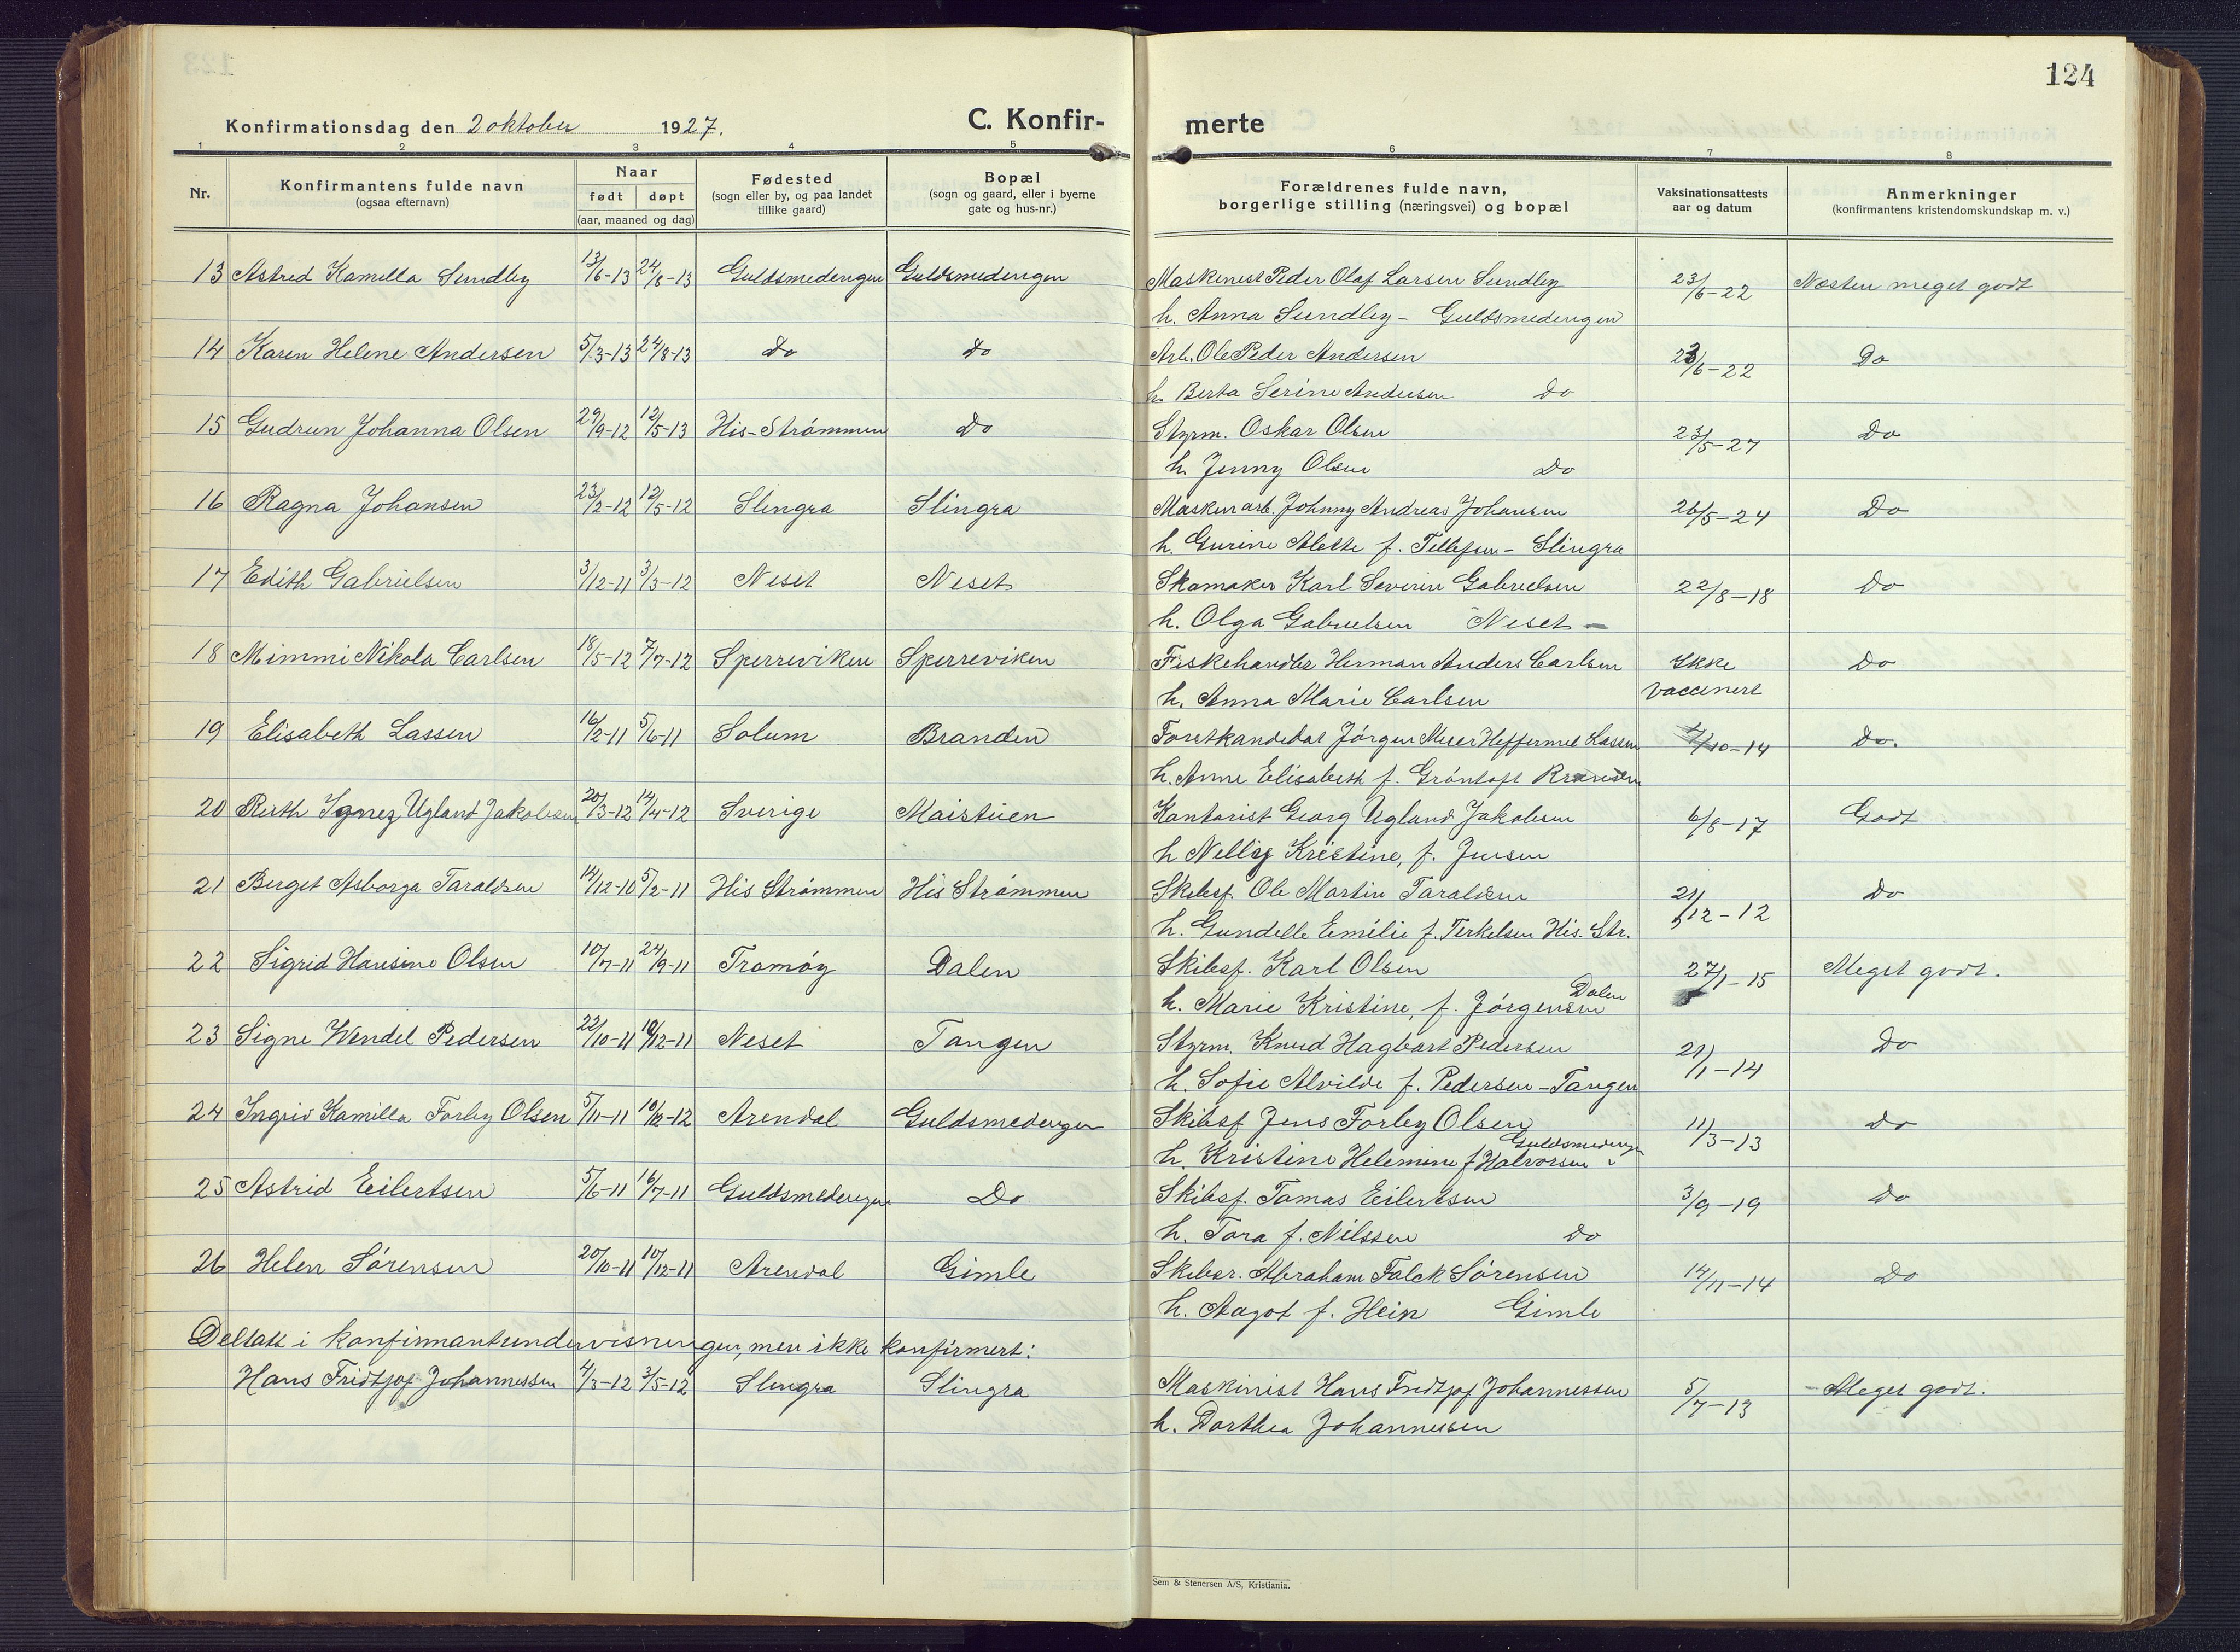 124
Konfirmationsdag den 2 oktober 1927.
C. Konfirmerte
1 2 3 4 5 6 7 8
Nr.
Konfirmantens fulde navn
(ogsaa efternavn)
Naar
født døpt
(aar, maaned og dag)
Fødested
(sogn eller by, og paa landet
tillike gaard)
Bopæl
(sogn og gaard, eller i byerne
gate og hus-nr.)
Forældrenes fulde navn,
borgerlige stilling (næringsvei) og bopæl
Vaksinationsattests
aar og datum
Anmerkninger
(konfirmantens kristendomskundskap m. v.)
13 Astred Kamilla Sundby 13/6-13 24/8-13 Guldsmedengen Guldsmedengen Maskinist Peder Olaf Larsen Sundby 23/6-22 Næsten meget godt
h. Anna Sundby - Guldsmedengen
14 Karen Helene Andersen 5/3-13 24/8-13 Do Do Arb. Ole Peder Andersen 23/6-22 Do
h. Berta Serine Andersen Do
15 Gudrun Johanna Olsen 29/9-12 12/5-13 His-Strømmen Do Styrm. Oskar Olsen 23/5-27 Do
h. Jenny Olsen Do
16 Ragna Johansen 23/2-12 12/5-12 Slingra Slingra Maskinarb. Johnny Andreas Johansen 26/5-24 Do
h. Gurine Alette f. Tellefsen - Slingra
17 Edith Gabrielsen 3/12-11 3/3-12 Neset Neset Skomaker Karl Severin Gabrielsen 22/8-18 Do
h. Olga Gabrielsen Neset -
18 Mimmi Nikola Carlsen 18/5-12 7/7-12 Sperreviken Sperreviken Fiskehandler Herman Anders Carlsen Ikke Do
h. Anna Marie Carlsen vaccinert
19 Elisabeth Lassen 16/2-11 5/6-11 Solum Branden Forstkandidat Jørgen Meier Heffermel Lassen /10-14 Do.
h. Anne Elisabeth f. Grøntoft Branden
20 Ruth Ignez Ugland Jakobsen 20/3-12 14/4-12 Sverige Maistuen Kontorist Georg Ugland Jakobsen 6/8-17 Godt
h Nelly Kristine, f. Jensen
21 Birget Asborga Taraldsen 14/12-10 5/2-11 His Strømmen His Strømmen Skibsf. Ole Martin Taraldsen 21/12-12 Do
h. Gundelle Emilie f. Terkelsen His. Str.
22 Sigrid Hansine Olsen 10/7-11 24/9-11 Tromøy Dalen Skibsf. Karl Olsen 27/1-15 Meget godt.
h. Marie Kristine, f. Jørgensen Dalen
23 Signe Wendel Pedersen 22/10-11 10/12-11 Neset Tangen Styrm. Knud Hagbart Pedersen 21/1-14 Do
h. Sofie Alvilde f. Pedersen - Tangen
24 Ingrid Kamilla Forby Olsen 5/11-11 10/12-12 Arendal Guldsmedengen Skibsf Jens Forby Olsen 11/3-13 Do
h. Kristine Helemine f Halvorsen Guldsmedengen
25 Astrid Eilertsen 5/6-11 16/7-11 Guldsmedengen Do Skibsf. Tomas Eilertsen 3/9-19 Do
h. Tora f. Nilssen Do
26 Helen Sørensen 20/10-11 10/12-11 Arendal Gimle Skibsr. Abraham Falck Sørensen 14/11-14 Do
h. Aagot f. Hein Gimle
Deltatt i konfirmantundervisningen, men ikke konfirmert:
Hans Fridtjof Johannessen 4/3-12 3/5-12 Slingra Slingra Maskinist Hans Fridtjof Johannessen 5/7-13 Meget godt.
h. Dorthea Johannessen
Sem & Stenersen A/S, Kristiania.